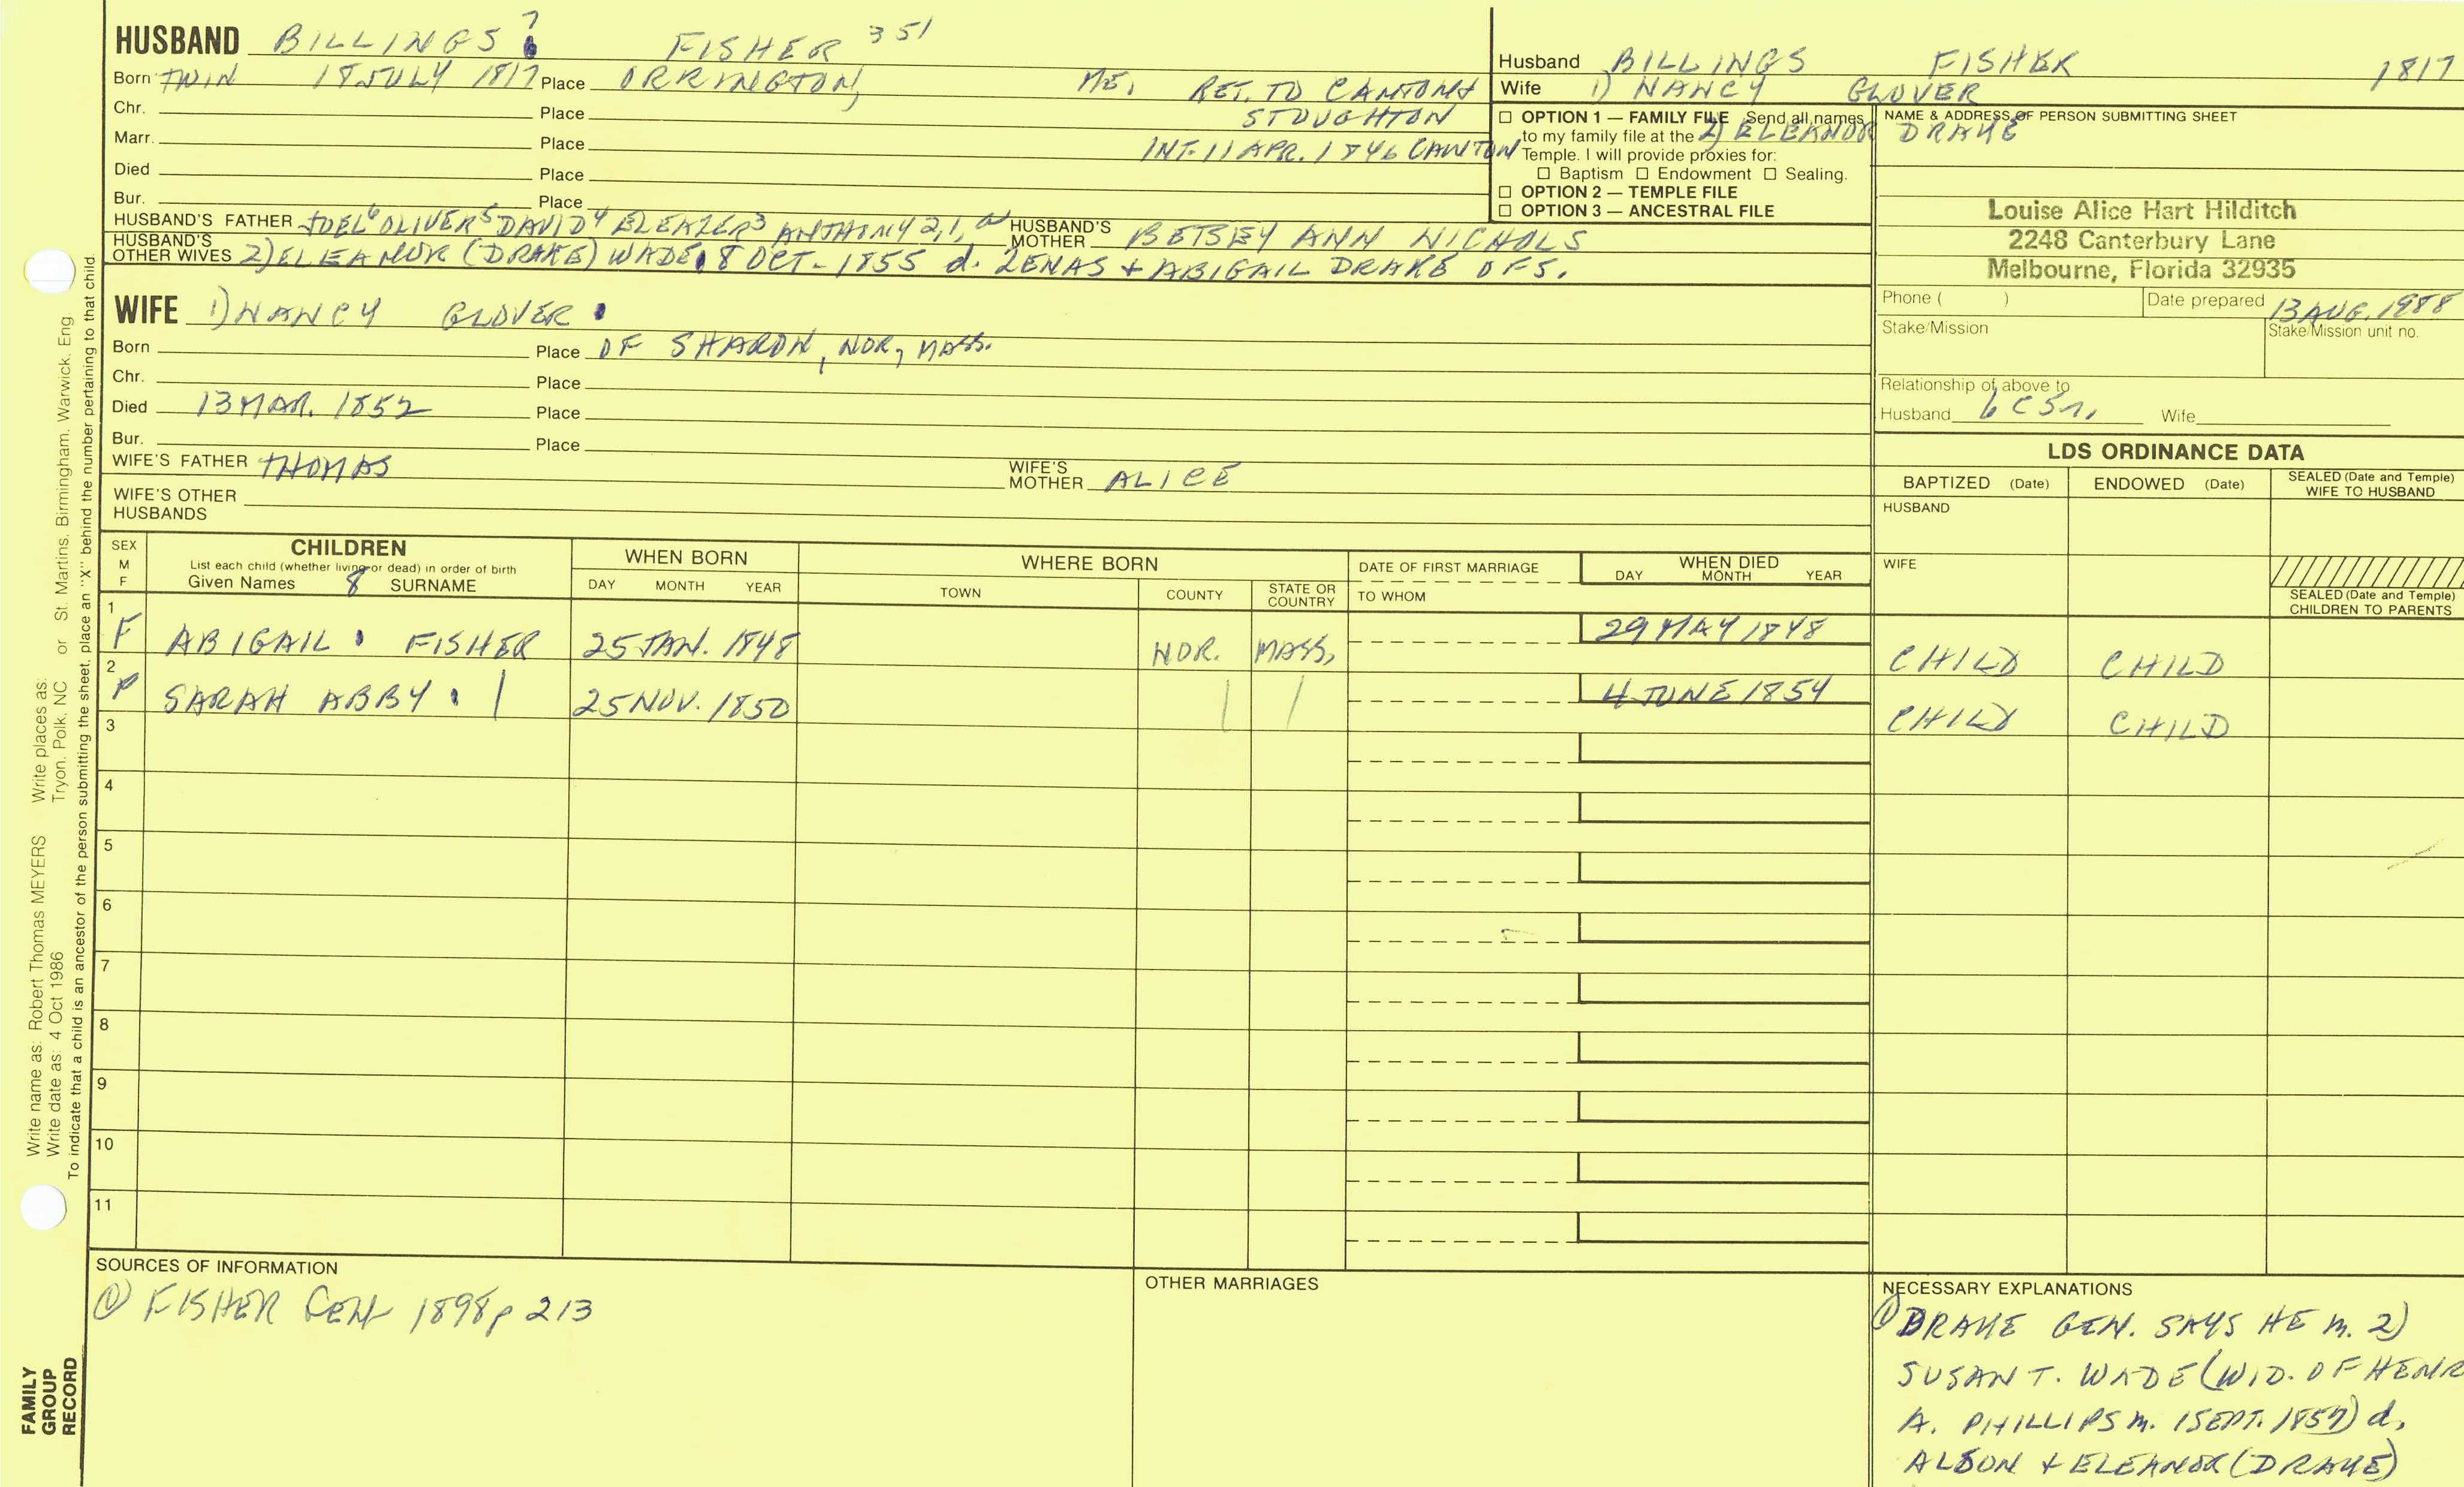 HUSBAND BILLINGS 7 FISHER 351
Born TWIN 18 JULY 1817 Place ORRINGTON, ME. RET. TO CANTON &
STOUGHTON
Chr. Place
Marr. Place INT. 11 APR. 1846 CANTON
Died Place
Bur. Place
HUSBAND'S FATHER JOEL 6 OLIVER 5 DAVID 4 ELEAZER 3 ANTHONY 2,1, HUSBAND'S MOTHER BETSEY ANN NICHOLS
HUSBAND'S OTHER WIVES 2) ELEANOR (DRAKE) WADE 8 OCT. 1855 d. ZENAS + ABIGAIL DRAKE OF S.
WIFE 1) NANCY GLOVER
Born Place OF SHARON, NOR, MASS.
Chr. Place
Died 13 MAR. 1852 Place
Bur. Place
WIFE'S FATHER THOMAS WIFE'S MOTHER ALICE
WIFE'S OTHER HUSBANDS
Husband BILLINGS FISHER 1817
Wife 1) NANCY GLOVER
2) ELEANOR DRAKE
□ OPTION 1 — FAMILY FILE Send all names
to my family file at the
Temple. I will provide proxies for:
□ Baptism □ Endowment □ Sealing.
□ OPTION 2 — TEMPLE FILE
□ OPTION 3 — ANCESTRAL FILE
NAME & ADDRESS OF PERSON SUBMITTING SHEET
Louise Alice Hart Hilditch
2248 Canterbury Lane
Melbourne, Florida 32935
Phone ( ) Date prepared 13 AUG. 1988
Stake/Mission Stake/Mission unit no.
Relationship of above to
Husband 6C5r. Wife
LDS ORDINANCE DATA
BAPTIZED (Date) ENDOWED (Date) SEALED (Date and Temple) WIFE TO HUSBAND
HUSBAND
WIFE
SEALED (Date and Temple) CHILDREN TO PARENTS
SEX M F CHILDREN List each child (whether living or dead) in order of birth Given Names 8 SURNAME WHEN BORN DAY MONTH YEAR WHERE BORN TOWN COUNTY STATE OR COUNTRY DATE OF FIRST MARRIAGE TO WHOM WHEN DIED DAY MONTH YEAR
1 F ABIGAIL FISHER 25 JAN. 1848 NOR. MASS. 29 MAY 1848 CHILD CHILD
2 F SARAH ABBY 25 NOV. 1850 4 JUNE 1854 CHILD CHILD
3
4
5
6
7
8
9
10
11
SOURCES OF INFORMATION
① FISHER GEN 1898 p 213
OTHER MARRIAGES
NECESSARY EXPLANATIONS
① DRAKE GEN. SAYS HE m. 2)
SUSAN T. WADE (WID. OF HENR
A. PHILLIPS m. 1 SEPT. 1857) d.
ALSON + ELEANOR (DRAKE)
Write name as: Robert Thomas MEYERS Write places as: St. Martins, Birmingham, Warwick, Eng
Write date as: 4 Oct 1986 Tryon, Polk, NC or
To indicate that a child is an ancestor of the person submitting the sheet, place an "X" behind the number pertaining to that child.
FAMILY
GROUP
RECORD